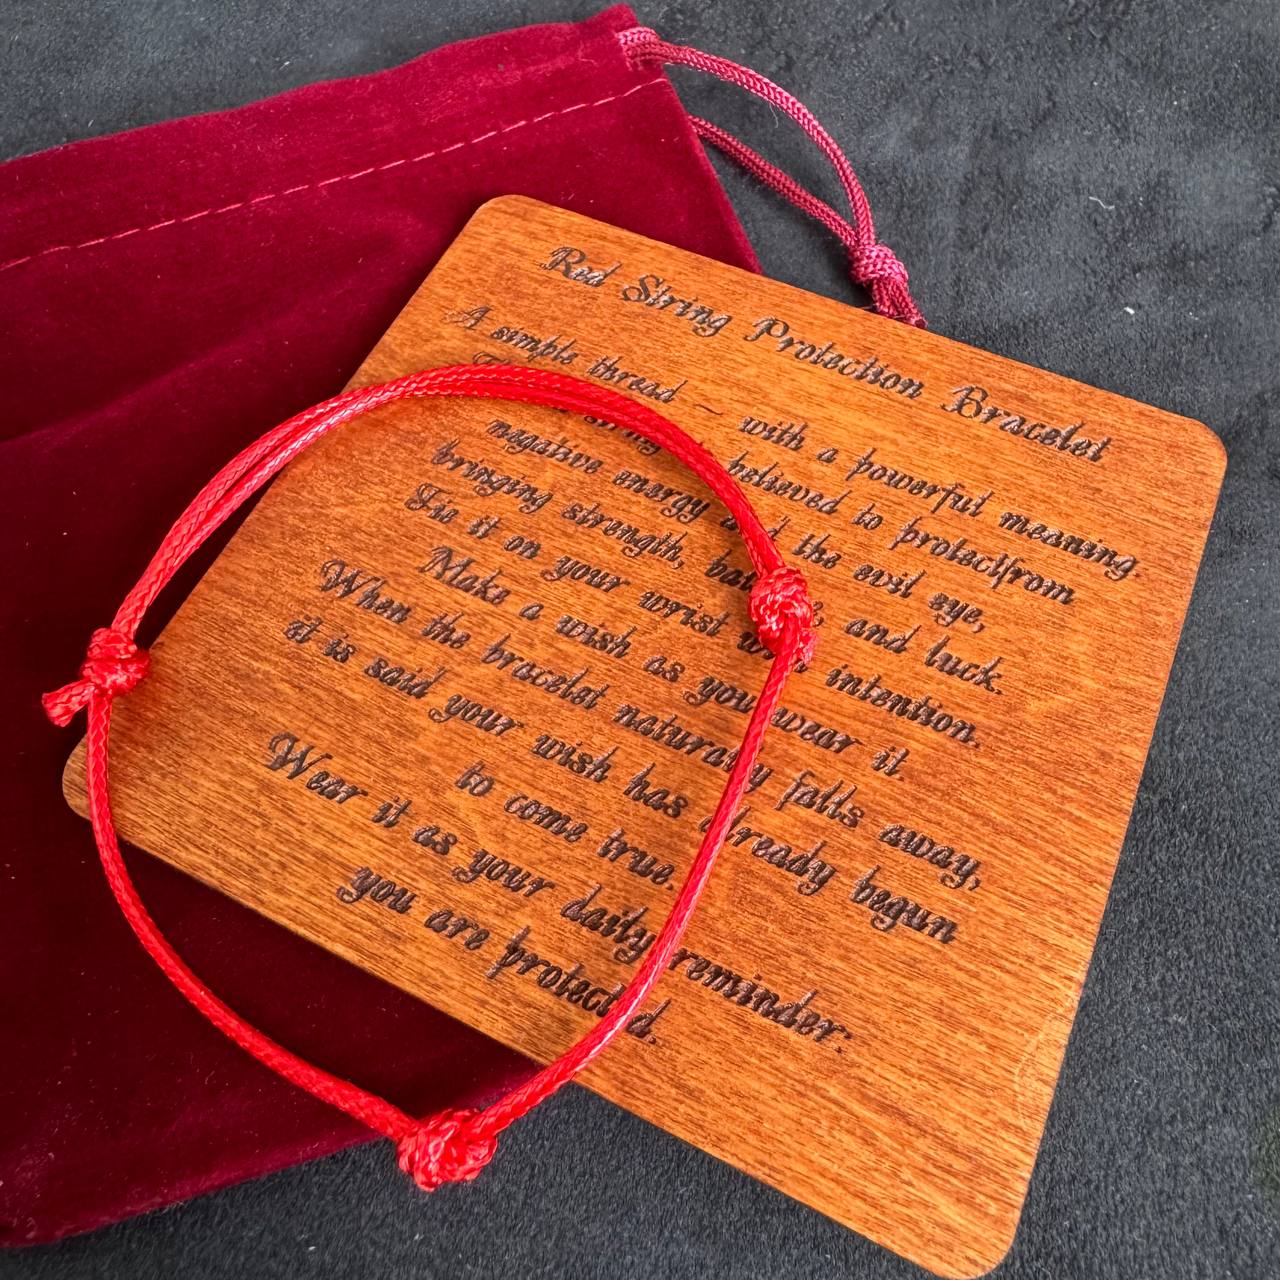 Red String Protection Bracelet
A simple thread – with a powerful meaning.
believed to protectfrom
negative energy and the evil eye,
bringing strength, and luck.
Tie it on your wrist intention.
Make a wish as you wear it.
When the bracelet naturally falls away,
it is said your wish has already begun
to come true.
Wear it as your daily reminder:
you are protected.